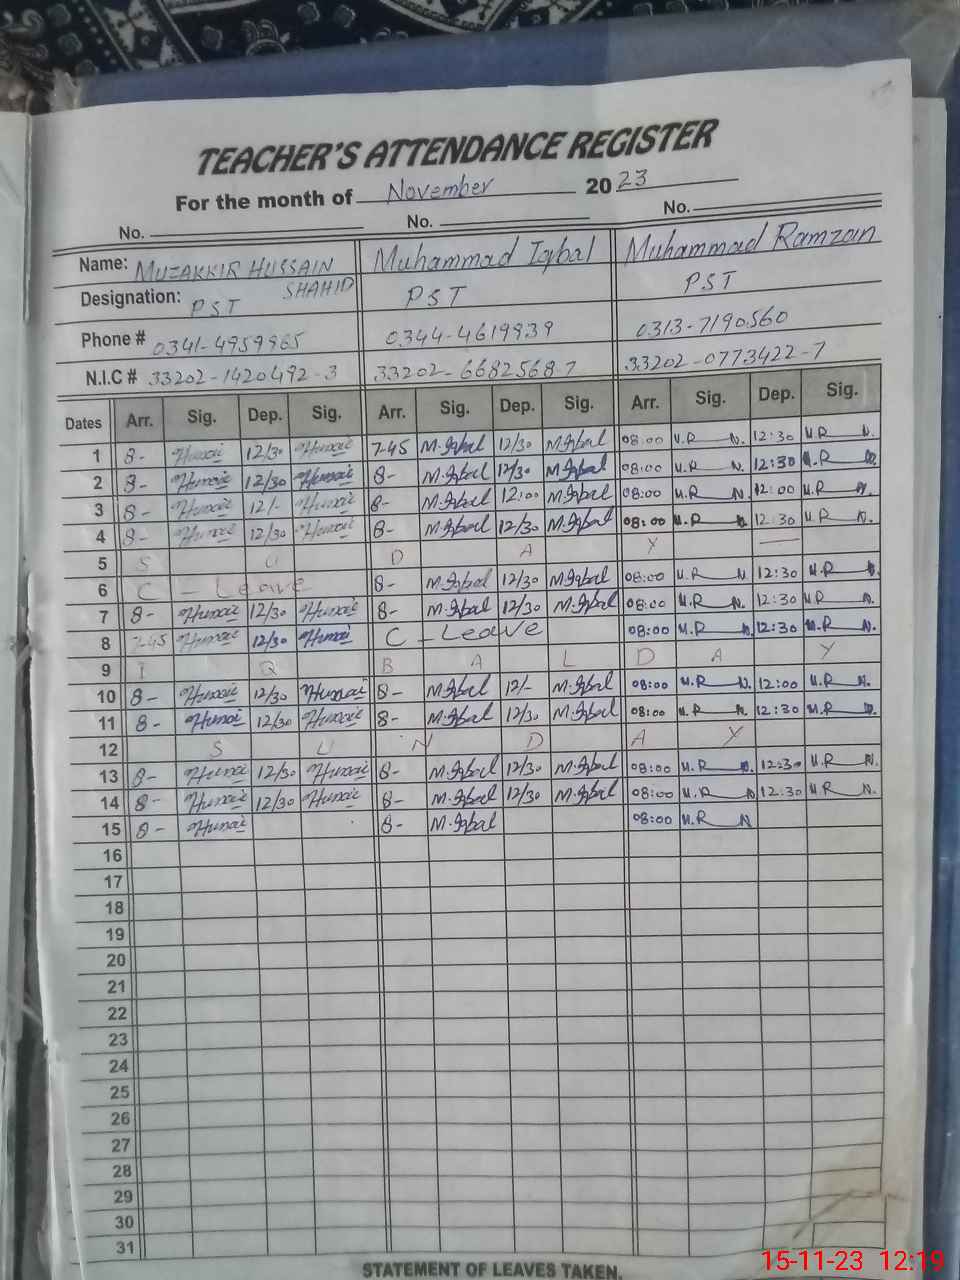 TEACHER'S ATTENDANCE REGISTER
For the month of November 2023
No. No. No.
Name: MUZAKKIR HUSSAIN SHAHID Muhammad Iqbal Muhammad Ramzan
Designation: PST PST PST
Phone # 0341-4959965 0344-4619939 0313-7190560
N.I.C # 33202-1420492-3 33202-6682568-7 33202-0773422-7
Dates Arr. Sig. Dep. Sig. Arr. Sig. Dep. Sig. Arr. Sig. Dep. Sig.
1 8- 12/30 7-45 M.Iqbal 12/30 M.Iqbal 08:00 M.R N. 12:30 M.R N.
2 8- 12/30 8- M.Iqbal 12/30 M.Iqbal 08:00 M.R N. 12:30 M.R N.
3 8- 12/- 8- M.Iqbal 12:00 M.Iqbal 08:00 M.R N. 12:00 M.R N.
4 8- 12/30 8- M.Iqbal 12/30 M.Iqbal 08:00 M.R N. 12:30 M.R N.
5 S U D A Y
6 C - Leave 8- M.Iqbal 12/30 M.Iqbal 08:00 M.R N. 12:30 M.R N.
7 8- 12/30 8- M.Iqbal 12/30 M.Iqbal 08:00 M.R N. 12:30 M.R N.
8 7-45 12/30 C - Leave 08:00 M.R N. 12:30 M.R N.
9 I Q B A L D A Y
10 8- 12/30 8- M.Iqbal 12/- M.Iqbal 08:00 M.R N. 12:00 M.R N.
11 8- 12/30 8- M.Iqbal 12/30 M.Iqbal 08:00 M.R N. 12:30 M.R N.
12 S U N D A Y
13 8- 12/30 8- M.Iqbal 12/30 M.Iqbal 08:00 M.R N. 12:30 M.R N.
14 8- 12/30 8- M.Iqbal 12/30 M.Iqbal 08:00 M.R N. 12:30 M.R N.
15 8- 8- M.Iqbal 08:00 M.R N
16
17
18
19
20
21
22
23
24
25
26
27
28
29
30
31
STATEMENT OF LEAVES TAKEN.
15-11-23 12:19